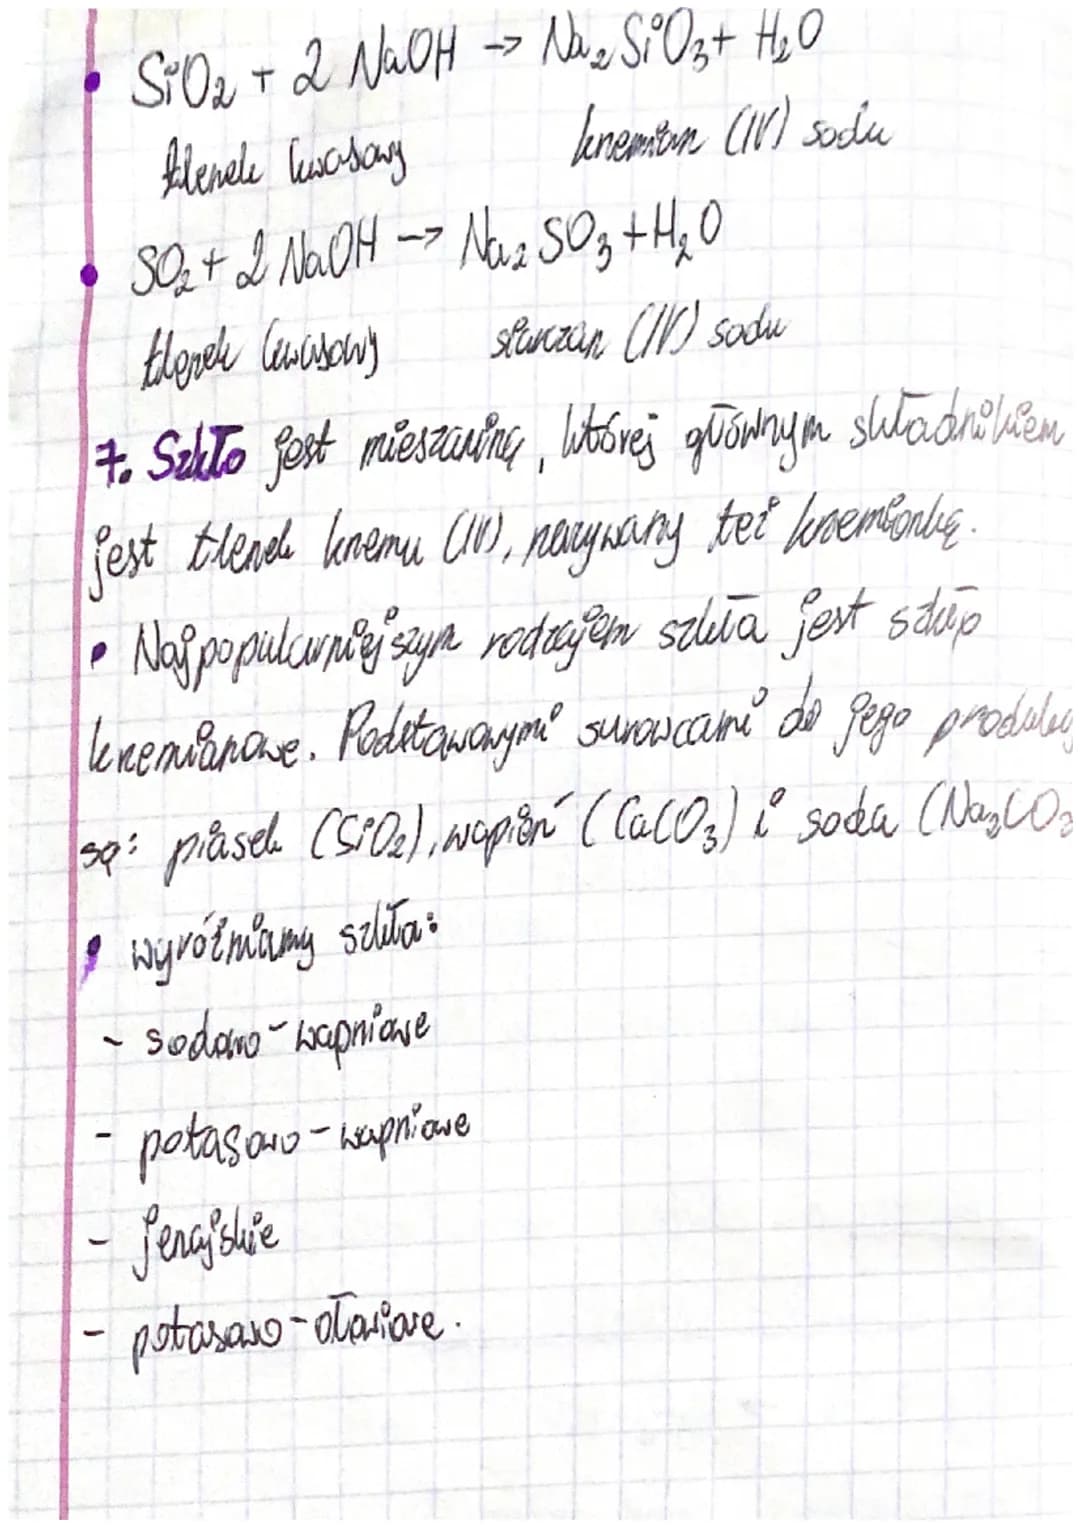 • SiO₂ + 2 NaOH -> Na₂SiO₃ + H₂O
tlenek kwasowy krzemian (IV) sodu
• SO₂ + 2 NaOH -> Na₂SO₃ + H₂O
tlenek kwasowy siarczan (IV) sodu
7. Szkło jest mieszaniną, której głównym składnikiem
jest tlenek krzemu (IV), nazywany też krzemionką.
• Najpopularniejszym rodzajem szkła jest
krzemianowe. Podstawowymi surowcami do jego
są: piasek (SiO₂), wapień (CaCO₃) i soda (Na₂CO₃
• wyróżniamy szkła:
- sodowo-wapniowe
- potasowo-wapniowe
- jenajskie
- potasowo-ołowiowe.